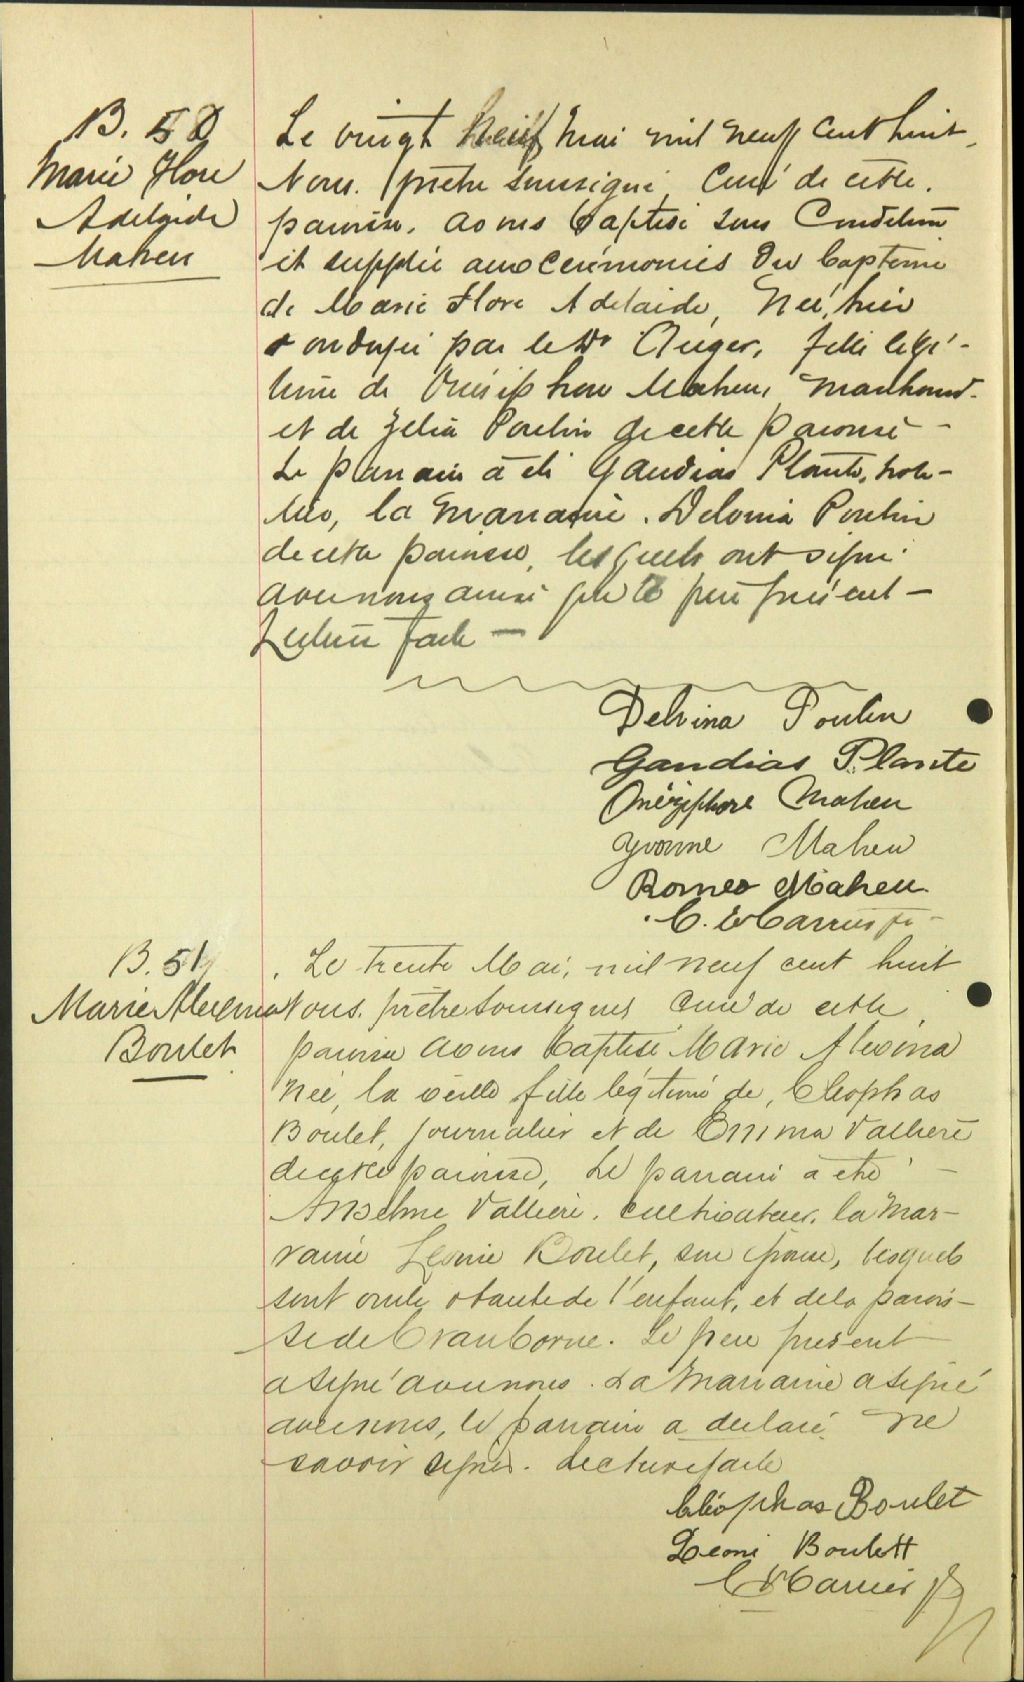 B. 50
Marie Flore
Adelaide
Maheu
Le vingt neuf Mai mil neuf cent huit,
Nous prêtre soussigné, Curé de cette
paroisse, avons baptisé sous Condition
et suppléé aux cérémonies du baptême
de Marie Flore Adelaide, Née, hier
ondoyée par le Dr Auger, fille légi-
time de Onésiphore Maheu, marchand
et de Zelia Poulin de cette paroisse -
Le parrain a été Gaudias Plante, no-
, la marraine. Delvina Poulin
de cette paroisse, lesquels ont signé
avec nous ainsi que le père présent -
Lecture faite -
Delvina Poulin
Gaudias Plante
Onéziphore Maheu
Yvonne Maheu
Romeo Maheu
B. 51
Marie Alexina
Boulet
Le trente Mai, mil neuf cent huit
Nous. prêtre soussigné Curé de cette
paroisse avons baptisé Marie Alexina
Née, la veille fille légitime de, Cleophas
Boulet, journalier et de Emma Vallière
de cette paroisse, Le parrain a été -
Anselme Vallière. cultivateur. la Mar-
raine Leonie Boulet, son épouse, lesquels
sont oncle et tante de l'enfant, et de la parois-
se de Cranborne. Le père présent
a signé avec nous. La Marraine a signé
avec nous, le parrain a déclaré ne
savoir signer. Lecture faite
Cléophas Boulet
Leoni Boulett